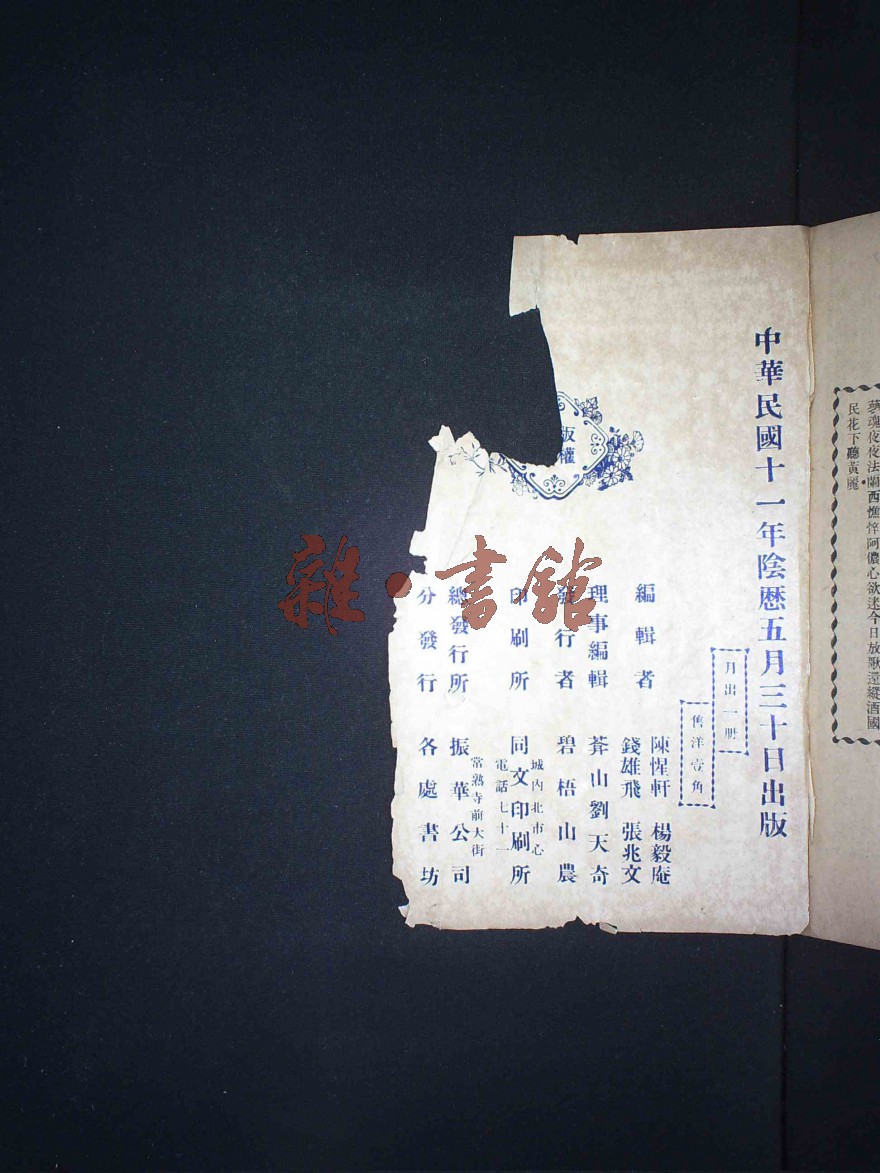 夢魂夜夜法蘭西憔悴阿儂心欲迷今日放歌還縱酒國
民花下聽黃鸝
中華民國十一年陰曆五月三十日出版
月出一册
售洋壹角
編輯者 陳惺軒 楊毅庵
錢雄飛 張兆文
理事編輯 莽山劉天奇
發行者 碧梧山農
印刷所 同文印刷所
城內北市心
電話七十一
總發行所 振華公司
常熟寺前大街
分發行 各處書坊
版權
雜·書館